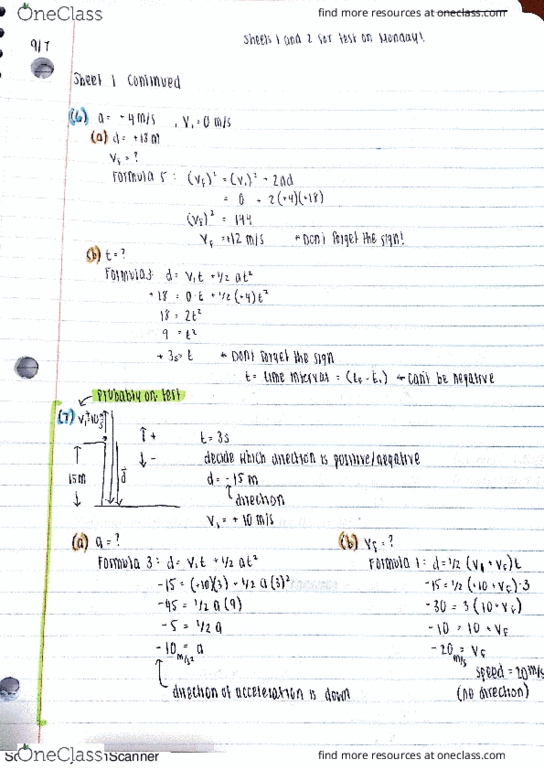 OneClass
find more resources at oneclass.com
9/7
Sheets 1 and 2 for test on Monday!
Sheet 1 Continued
(6) a = +4 m/s , V₁ = 0 m/s
(a) d = +18 m
V_f = ?
Formula 5: (V_f)² = (V₁)² + 2ad
= 0 + 2(+4)(+18)
(V_f)² = 144
V_f = +12 m/s * Don't forget the sign!
(b) t = ?
Formula 3: d = V₁t + 1/2 at²
+18 = 0·t + 1/2(+4)t²
18 = 2t²
9 = t²
+3s = t * Don't forget the sign
t = time interval = (t_f - t₁) → can't be negative
Probably on test
(7) V₁=10 m/s
↑ +
↓ -
t = 3s
15m
d
decide which direction is positive/negative
d = -15 m
direction
V₁ = +10 m/s
(a) a = ?
Formula 3: d = V₁t + 1/2 at²
-15 = (+10)(3) + 1/2 a(3)²
-45 = 1/2 a(9)
-5 = 1/2 a
-10 m/s² = a
direction of acceleration is down
(b) V_f = ?
Formula 1: d = 1/2 (V₁ + V_f)t
-15 = 1/2 (+10 + V_f)·3
-30 = 3(10 + V_f)
-10 = 10 + V_f
-20 m/s = V_f
speed = 20 m/s
(no direction)
OneClass
Scanner
find more resources at oneclass.com